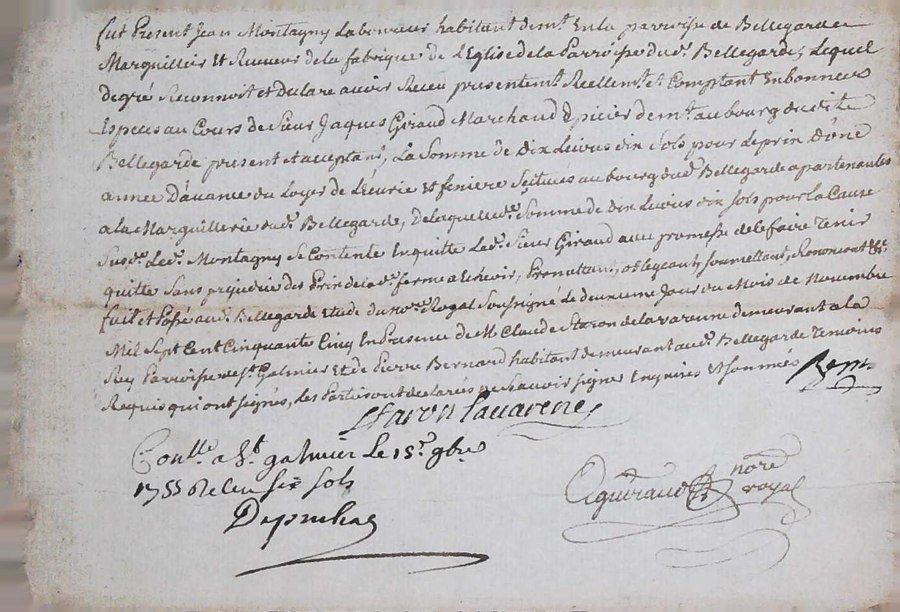 fut Present Jean Montagny Laboureur habitant demt. En la parroisse de Bellegarde
Marguillier Et Receveur de la fabrique de L'Eglise de la Parroisse dud. Bellegarde, Lequel
de gré Reconnoit et declare avoir Receu presentemt. Reallemt. et Comptant En bonnes
Especes au Cours de Sieur Jaques Giraud Marchand Epicier demt. au bourg dudite
Bellegarde present et acceptant, La Somme de Dix Livres dix Sols pour le prix D'une
année D'avance du Loyer de L'écurie et feniere Scitues au bourg dud. Bellegarde apartenantes
a la Marguillerie dud. Bellegarde, De laquelle de. Somme de Dix Livres dix Sols pour la Cause
Susde. Led. Montagny Se Contente En quitte Led. Sieur Giraud avec promesse de le faire Tenir
quitte Sans prejudice des Prix de la de. ferme a Echeoir, Promettant, obligeant, Soumettant, Renoncant &c.
fait et Passé aud. Bellegarde Etude du nore. Royal Soussigné Le deuxieme Jour du Mois de Novembre
Mil Sept Cent Cinquante Cinq En Presence de M Claude Staron de la varenne demeurant a la
Rey Parroisse de St. Galmier Et de Pierre Bernard habitant demeurant aud. Bellegarde Temoins
Requis qui ont Signes, Les Parties ont declarés ne Scavoir signer Enquises Et Sommés
Staron Lavarene
Conllé a St. galmier Le 15e. gbre
1755 Receu six Sols
Depinhac
Aguiraud nore royal